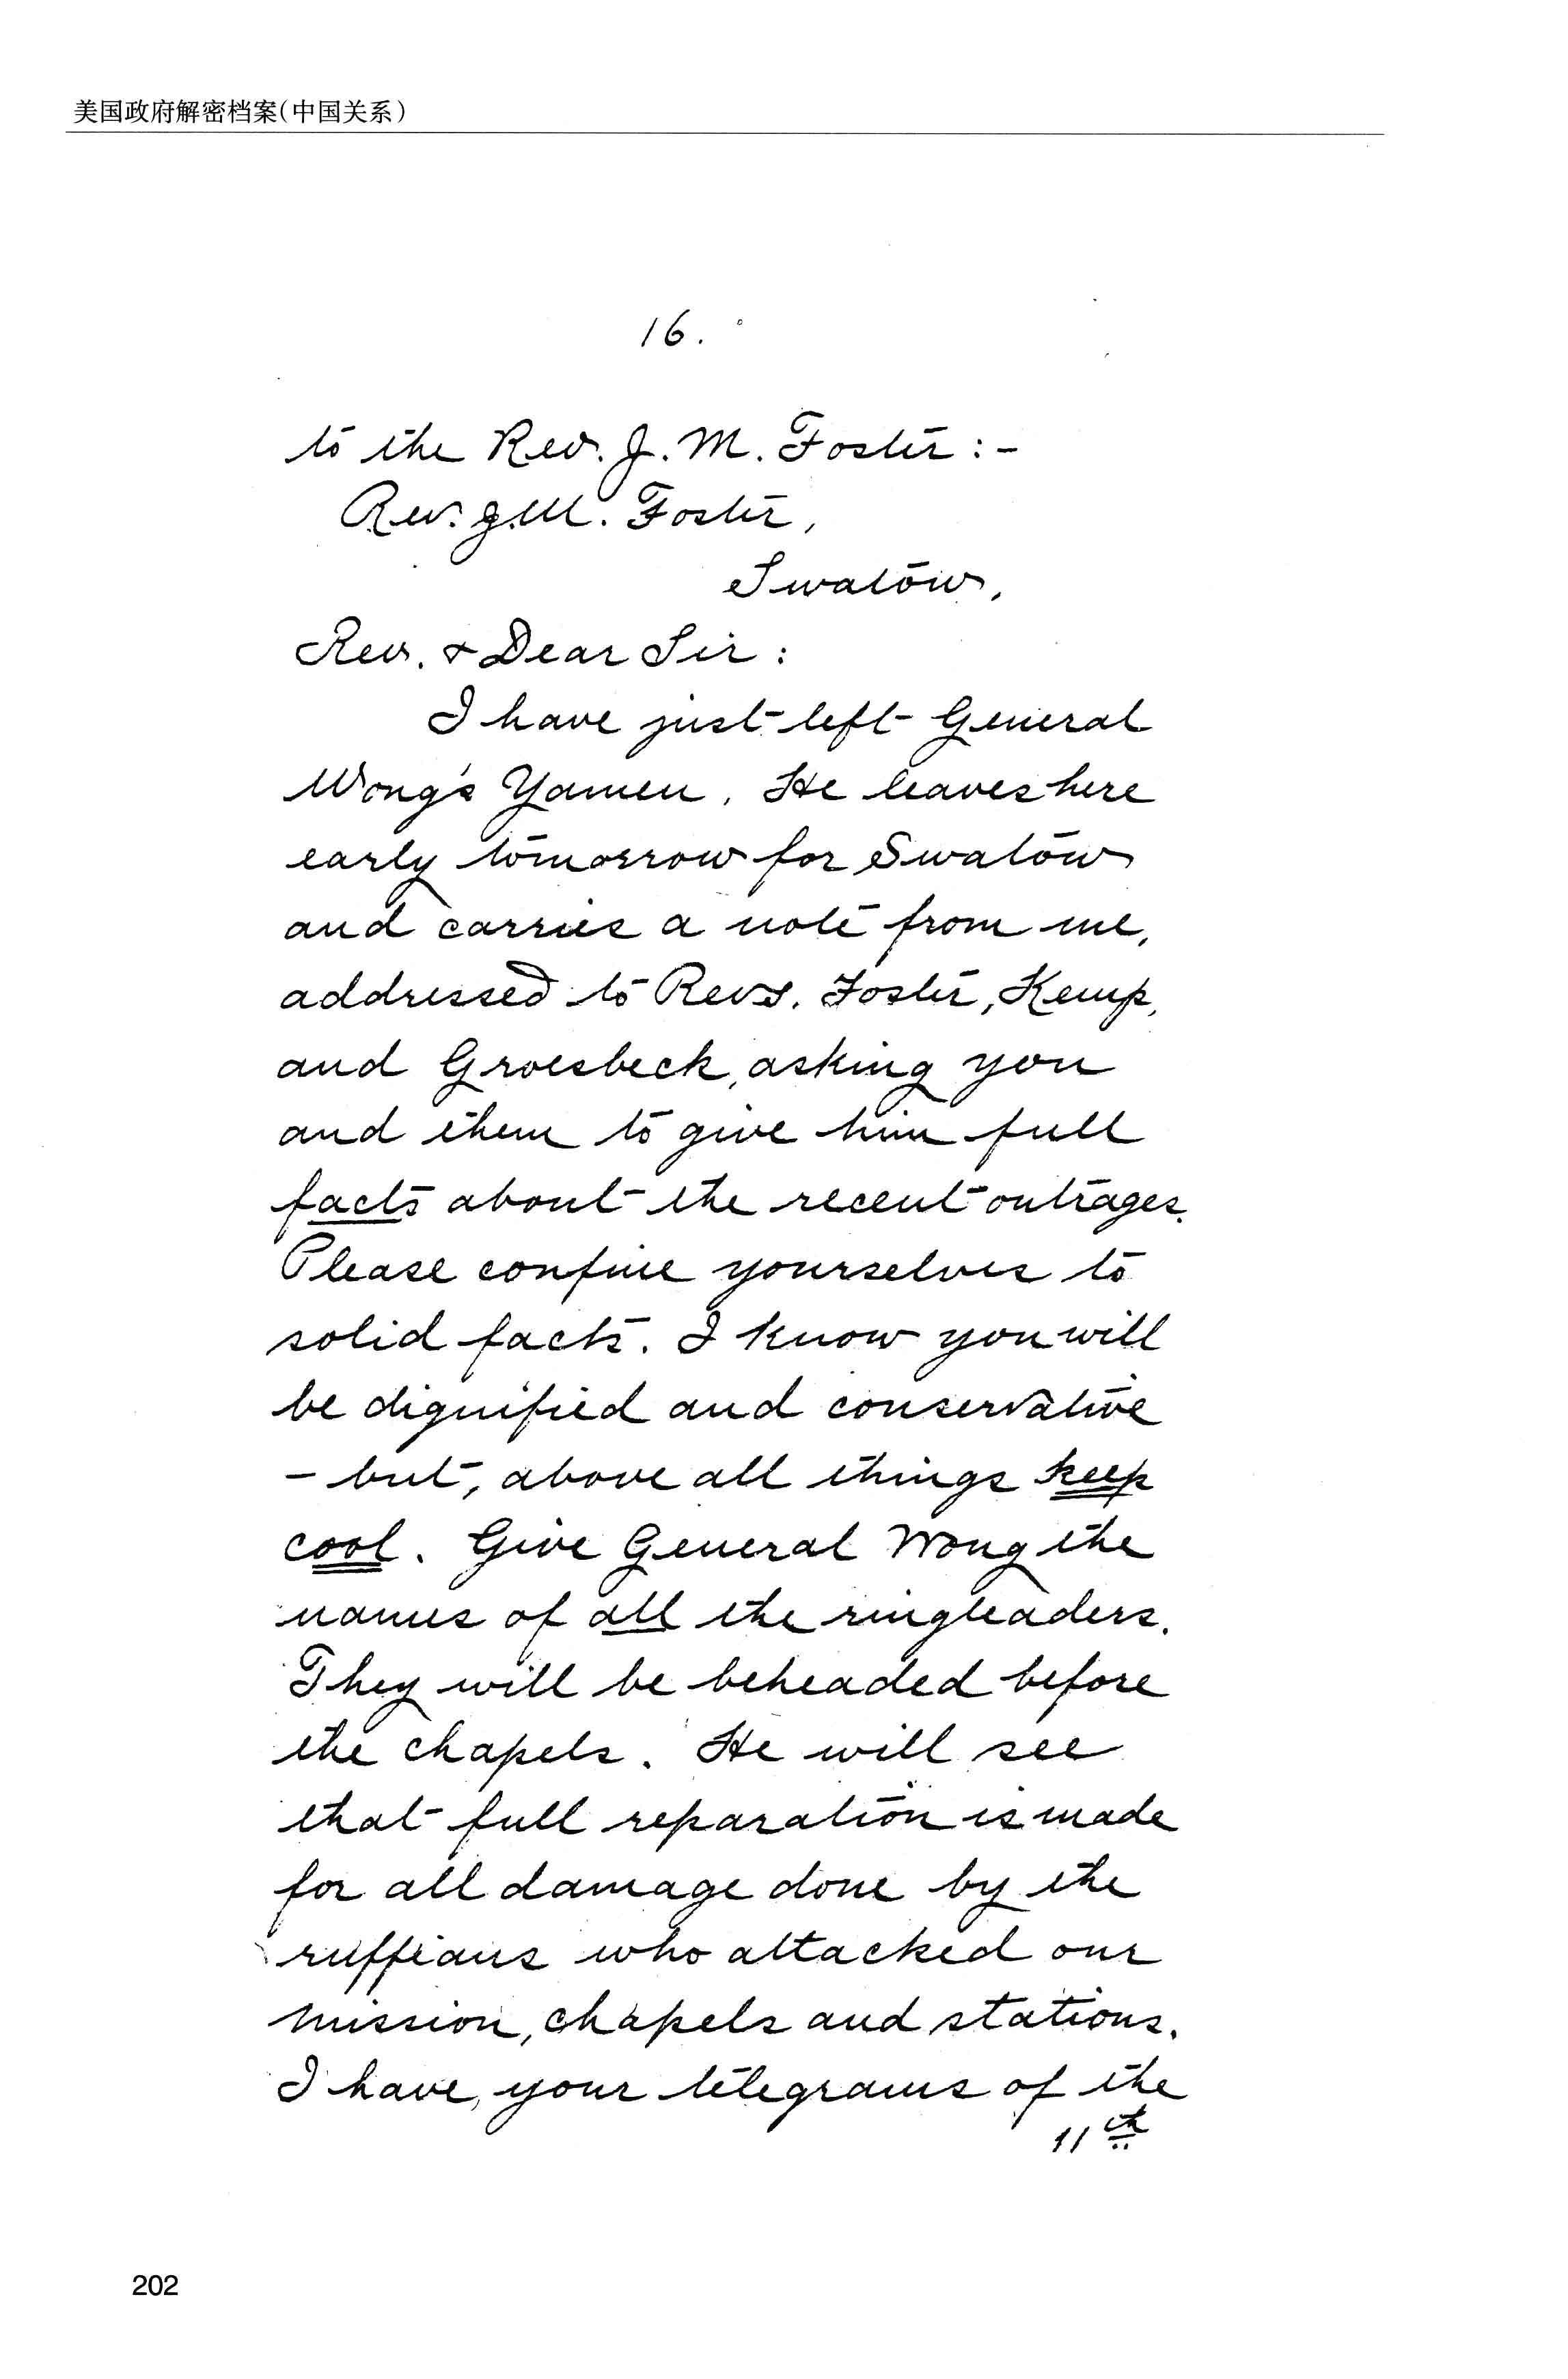 美国政府解密档案(中国关系)
16.
to the Rev. J. M. Foster :-
Rev. J. M. Foster,
Swatow,
Rev. & Dear Sir :
I have just left General
Wong's Yamen. He leaves here
early tomorrow for Swatow
and carries a note from me,
addressed to Revs. Foster, Kemp,
and Groesbeck, asking you
and them to give him full
facts about the recent outrages.
Please confine yourselves to
solid facts. I know you will
be dignified and conservative
- but, above all things keep
cool. Give General Wong the
names of all the ringleaders.
They will be beheaded before
the chapels. He will see
that full reparation is made
for all damage done by the
ruffians who attacked our
mission, chapels and stations.
I have, your telegrams of the
11th
202